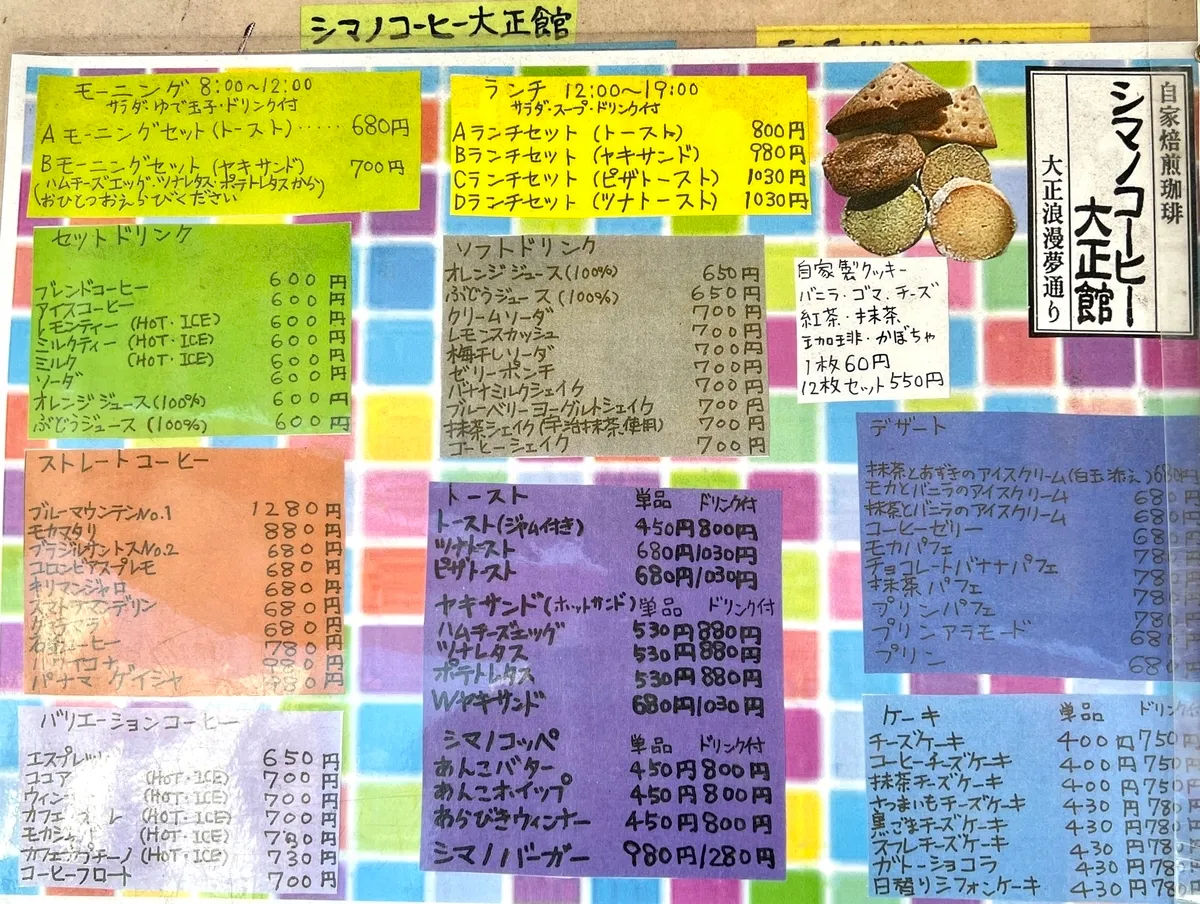 シマノコーヒー大正館
モーニング 8:00〜12:00
サラダ・ゆで玉子・ドリンク付
Aモーニングセット(トースト)‥‥‥ 680円
Bモーニングセット(ヤキサンド) 700円
(ハムチーズエッグ・ツナレタス・ポテトレタスから)
おひとつおえらびください
ランチ 12:00〜19:00
サラダ・スープ・ドリンク付
Aランチセット (トースト) 800円
Bランチセット (ヤキサンド) 980円
Cランチセット (ピザトースト) 1030円
Dランチセット (ツナトースト) 1030円
自家焙煎珈琲
シマノコーヒー
大正館
大正浪漫夢通り
セットドリンク
ブレンドコーヒー 600円
アイスコーヒー 600円
レモンティー (HOT・ICE) 600円
ミルクティー (HOT・ICE) 600円
ミルク (HOT・ICE) 600円
ソーダ 600円
オレンジジュース(100%) 600円
ぶどうジュース (100%) 600円
ソフトドリンク
オレンジジュース(100%) 650円
ぶどうジュース (100%) 650円
クリームソーダ 700円
レモンスカッシュ 700円
梅干しソーダ 700円
ゼリーポンチ 700円
バナナミルクシェイク 700円
ブルーベリーヨーグルトシェイク 700円
抹茶シェイク(宇治抹茶使用) 700円
コーヒーシェイク 700円
自家製クッキー
バニラ・ゴマ・チーズ
紅茶・抹茶
珈琲・かぼちゃ
1枚60円
12枚セット550円
ストレートコーヒー
ブルーマウンテンNo.1 1280円
モカマタリ 880円
ブラジルサントスNo.2 680円
コロンビアスプレモ 680円
キリマンジャロ 680円
スマトラマンデリン 680円
680円
コーヒー 780円
ハワイコナ 980円
パナマ ゲイシャ 980円
バリエーションコーヒー
エスプレッソ 650円
ココア (HOT・ICE) 700円
ウィン (HOT・ICE) 700円
カフェ レ (HOT・ICE) 700円
モカ (HOT・ICE) 円
カフェカプチーノ (HOT・ICE) 730円
コーヒーフロート 700円
トースト 単品 ドリンク付
トースト(ジャム付き) 450円 800円
ツナトースト 680円/1030円
ピザトースト 680円/1030円
ヤキサンド(ホットサンド) 単品 ドリンク付
ハムチーズエッグ 530円 880円
ツナレタス 530円 880円
ポテトレタス 530円 880円
Wヤキサンド 680円/1030円
シマノコッペ 単品 ドリンク付
あんこバター 450円 800円
あんこホイップ 450円 800円
あらびきウィンナー 450円 800円
シマノバーガー 980円/1280円
デザート
抹茶とあずきのアイスクリーム(白玉添え) 680円
モカとバニラのアイスクリーム 680
抹茶とバニラのアイスクリーム 680
コーヒーゼリー 680
モカパフェ 780
チョコレートバナナパフェ 780
抹茶パフェ 780
プリンパフェ 780
プリンアラモード 680
プリン 680
ケーキ 単品 ドリンク
チーズケーキ 400円 750
コーヒーチーズケーキ 400円 750
抹茶チーズケーキ 400円 750
さつまいもチーズケーキ 430円 780
黒ごまチーズケーキ 430円 780
スフレチーズケーキ 430円 780
ガトーショコラ 430円 780
日替りシフォンケーキ 430円 780